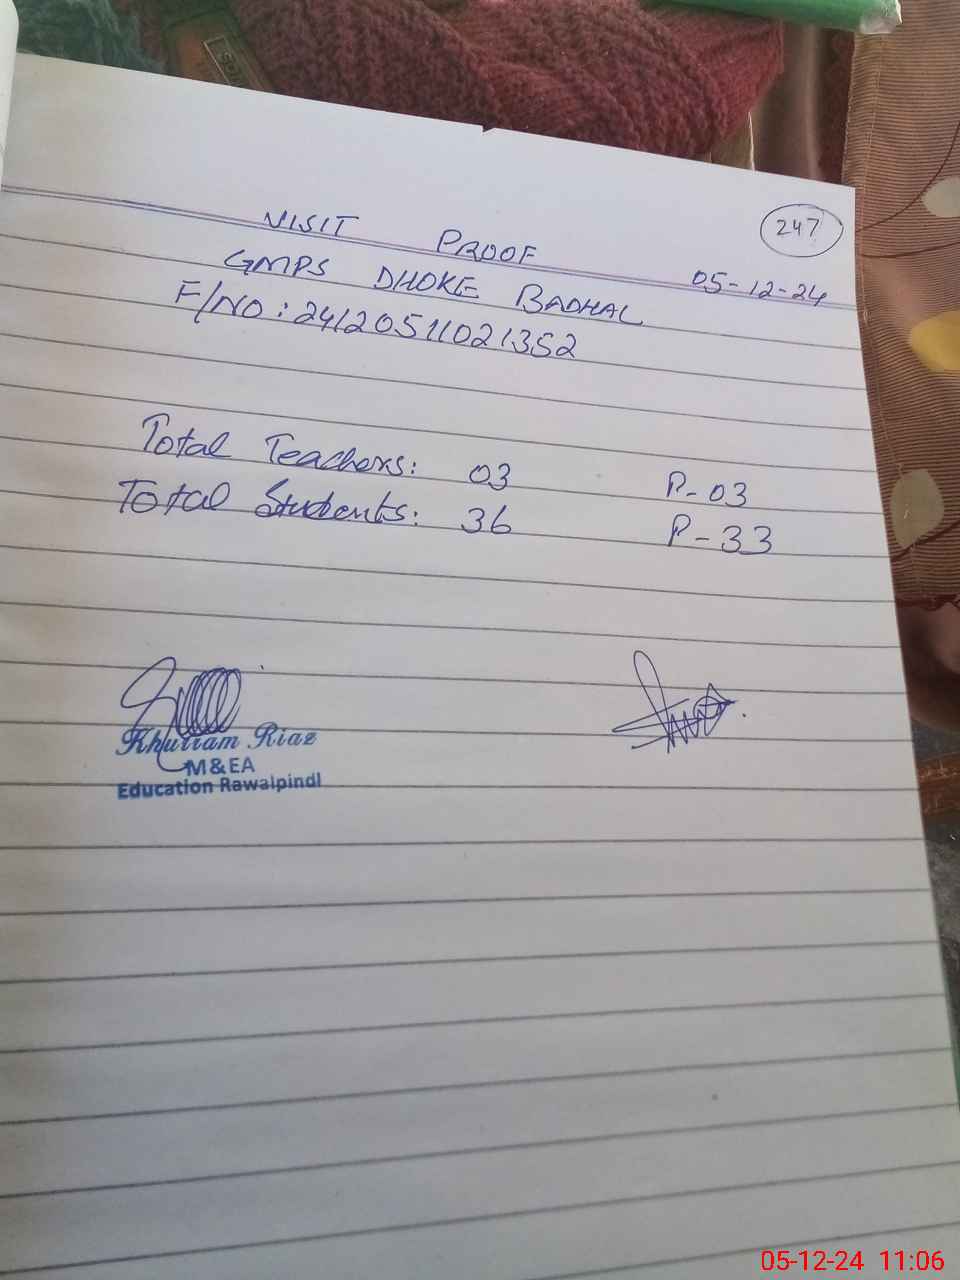 247
VISIT PROOF
05-12-24
GMPS DHOKE BADHAL
F/NO: 24120511021352
Total Teachers: 03 P-03
Total Students: 36 P-33
Khurram Riaz
M&EA
Education Rawalpindi
05-12-24 11:06